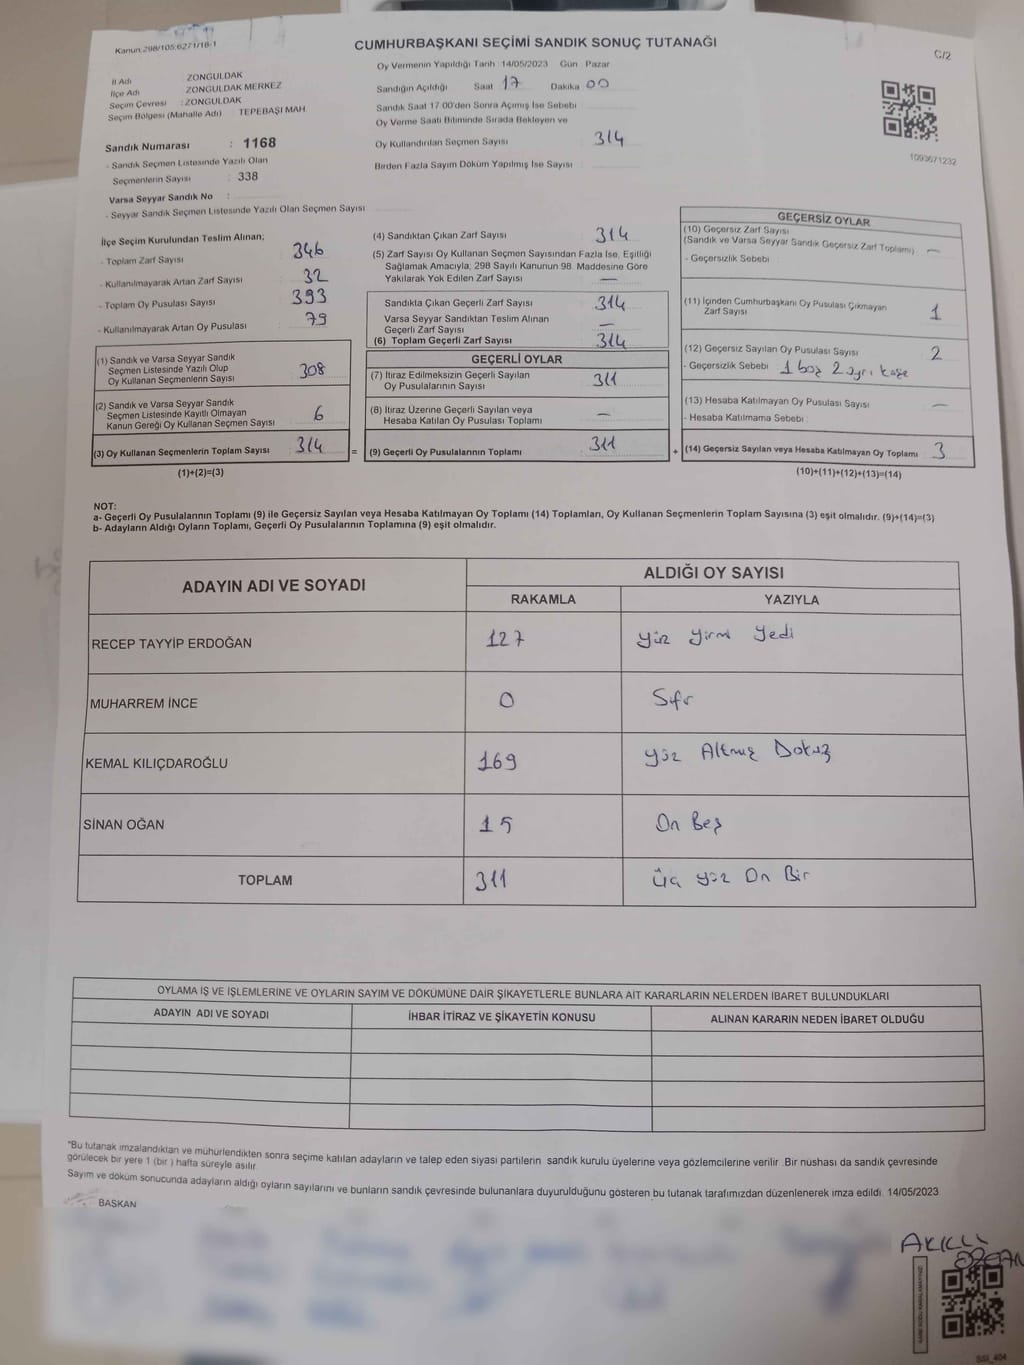 Kanun:298/105:6271/18-1
CUMHURBAŞKANI SEÇİMİ SANDIK SONUÇ TUTANAĞI
C/2
İl Adı : ZONGULDAK
İlçe Adı : ZONGULDAK MERKEZ
Seçim Çevresi : ZONGULDAK
Seçim Bölgesi (Mahalle Adı) : TEPEBAŞI MAH
Sandık Numarası : 1168
- Sandık Seçmen Listesinde Yazılı Olan
Seçmenlerin Sayısı : 338
Varsa Seyyar Sandık No :
- Seyyar Sandık Seçmen Listesinde Yazılı Olan Seçmen Sayısı
Oy Vermenin Yapıldığı Tarih :14/05/2023 Gün : Pazar
Sandığın Açıldığı Saat 17 Dakika 00
Sandık Saat 17:00'den Sonra Açılmış İse Sebebi
Oy Verme Saati Bitiminde Sırada Bekleyen ve
Oy Kullandırılan Seçmen Sayısı 314
Birden Fazla Sayım Döküm Yapılmış İse Sayısı
1093671232
İlçe Seçim Kurulundan Teslim Alınan;
- Toplam Zarf Sayısı 346
- Kullanılmayarak Artan Zarf Sayısı 32
- Toplam Oy Pusulası Sayısı 393
- Kullanılmayarak Artan Oy Pusulası 79
(1) Sandık ve Varsa Seyyar Sandık
Seçmen Listesinde Yazılı Olup
Oy Kullanan Seçmenlerin Sayısı 308
(2) Sandık ve Varsa Seyyar Sandık
Seçmen Listesinde Kayıtlı Olmayan
Kanun Gereği Oy Kullanan Seçmen Sayısı 6
(3) Oy Kullanan Seçmenlerin Toplam Sayısı 314
(1)+(2)=(3)
(4) Sandıktan Çıkan Zarf Sayısı 314
(5) Zarf Sayısı Oy Kullanan Seçmen Sayısından Fazla İse, Eşitliği
Sağlamak Amacıyla; 298 Sayılı Kanunun 98. Maddesine Göre
Yakılarak Yok Edilen Zarf Sayısı —
Sandıkta Çıkan Geçerli Zarf Sayısı 314
Varsa Seyyar Sandıktan Teslim Alınan
Geçerli Zarf Sayısı —
(6) Toplam Geçerli Zarf Sayısı 314
GEÇERLİ OYLAR
(7) İtiraz Edilmeksizin Geçerli Sayılan
Oy Pusulalarının Sayısı 311
(8) İtiraz Üzerine Geçerli Sayılan veya
Hesaba Katılan Oy Pusulası Toplamı —
= (9) Geçerli Oy Pusulalarının Toplamı 311
GEÇERSİZ OYLAR
(10) Geçersiz Zarf Sayısı
(Sandık ve Varsa Seyyar Sandık Geçersiz Zarf Toplamı) —
- Geçersizlik Sebebi :
(11) İçinden Cumhurbaşkanı Oy Pusulası Çıkmayan
Zarf Sayısı 1
(12) Geçersiz Sayılan Oy Pusulası Sayısı 2
- Geçersizlik Sebebi : 1 boş 2 ayrı kaşe
(13) Hesaba Katılmayan Oy Pusulası Sayısı —
- Hesaba Katılmama Sebebi :
+ (14) Geçersiz Sayılan veya Hesaba Katılmayan Oy Toplamı 3
(10)+(11)+(12)+(13)=(14)
NOT:
a- Geçerli Oy Pusulalarının Toplamı (9) ile Geçersiz Sayılan veya Hesaba Katılmayan Oy Toplamı (14) Toplamları, Oy Kullanan Seçmenlerin Toplam Sayısına (3) eşit olmalıdır. (9)+(14)=(3)
b- Adayların Aldığı Oyların Toplamı, Geçerli Oy Pusulalarının Toplamına (9) eşit olmalıdır.
ADAYIN ADI VE SOYADI ALDIĞI OY SAYISI
RAKAMLA YAZIYLA
RECEP TAYYİP ERDOĞAN 127 yüz yirmi yedi
MUHARREM İNCE 0 Sıfır
KEMAL KILIÇDAROĞLU 169 yüz Altmış Dokuz
SİNAN OĞAN 15 On Beş
TOPLAM 311 Üç yüz On Bir
OYLAMA İŞ VE İŞLEMLERİNE VE OYLARIN SAYIM VE DÖKÜMÜNE DAİR ŞİKAYETLERLE BUNLARA AİT KARARLARIN NELERDEN İBARET BULUNDUKLARI
ADAYIN ADI VE SOYADI İHBAR İTİRAZ VE ŞİKAYETİN KONUSU ALINAN KARARIN NEDEN İBARET OLDUĞU
*Bu tutanak imzalandıktan ve mühürlendikten sonra seçime katılan adayların ve talep eden siyasi partilerin sandık kurulu üyelerine veya gözlemcilerine verilir. Bir nüshası da sandık çevresinde
görülecek bir yere 1 (bir) hafta süreyle asılır.
Sayım ve döküm sonucunda adayların aldığı oyların sayılarını ve bunların sandık çevresinde bulunanlara duyurulduğunu gösteren bu tutanak tarafımızdan düzenlenerek imza edildi. 14/05/2023
BAŞKAN
AKILLI
ÖZCAN
KARE KODU KARALAMAYINIZ!